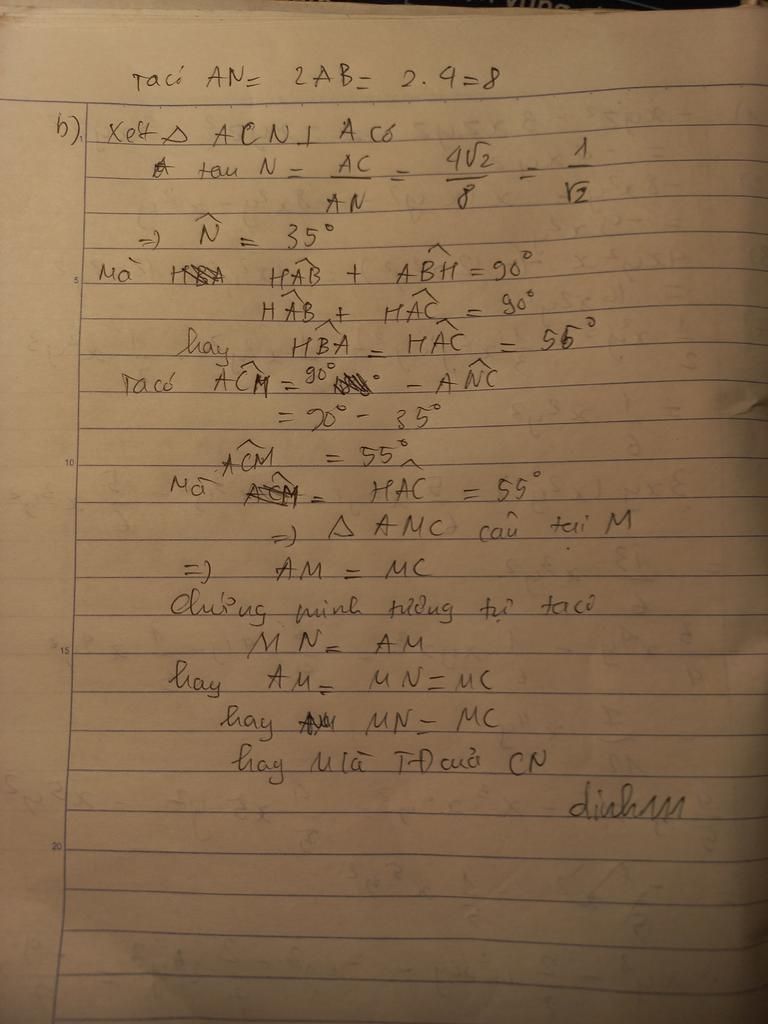 Ta có AN = 2AB = 2.4 = 8
b) Xét Δ ACN ⊥ A có
tan N = AC/AN = 4√2/8 = 1/√2
=> N̂ = 35°
Mà HÂB + AB̂H = 90°
HÂB + HÂC = 90°
hay HB̂A = HÂC = 55°
Ta có AĈM = 90° - AN̂C
= 90° - 35°
AĈM = 55°
Mà = HÂC = 55°
=> Δ AMC cân tại M
=> AM = MC
Chứng minh tương tự ta có
MN = AM
hay AM = MN = MC
hay MN = MC
hay M là TĐ của CN
5
10
15
20